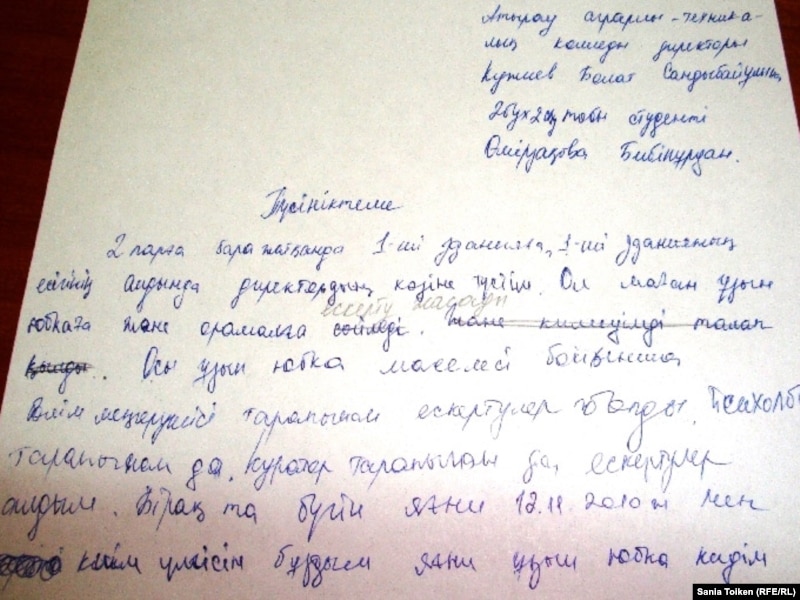 Атырау аграрлы-техника-
лық колледы директоры
Кужиев Болат Сандыбайұлына
2бух2оқ тобы студенті
Өмірзақова Бибінұрдан.
Түсініктеме
2 парға бара жатқанда 1-ші зданияға, 1-ші зданияның
есігінің алдында директордың көзіне түстім. Ол маған ұзын
ескерту жасады
юбкаға және орамалға сөйледі. және кимеуімді талап
қылды. Осы ұзын юбка мәселесі бойынша
Бөлім меңгерушісі тарапынан ескертулер болды. Психолог
тарапынан да, куратор тарапынан да ескертулер
алдым. Бірақ та бүгін яғни 12.11.2010ж мен
киім үлгісін бұздым яғни ұзын юбка кидім
Sania Toiken (RFE/RL)